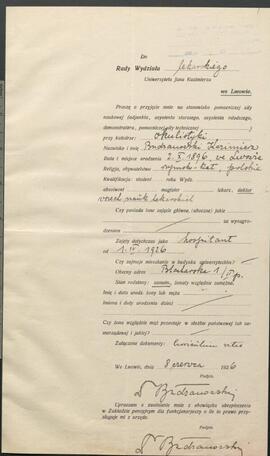 Do
Rady Wydziału lekarskiego
Uniwersytetu Jana Kazimierza
we Lwowie.
Proszę o przyjęcie mnie na stanowisko pomocniczej siły
naukowej (adjunkta, asystenta starszego, asystenta młodszego,
demonstratora, pomocniczej siły technicznej)
przy katedrze: okulistyki
Nazwisko i imię Budzanowski Kazimierz
Data i miejsce urodzenia 2. X 1896, we Lwowie
Religja, obywatelstwo rzymsko-kat., polskie
Kwalifikacja: student roku Wydz.
absolwent magister lekarz, doktor
wszech nauk lekarskich
Czy posiada inne zajęcie główne, (uboczne) jakie
za wynagro-
dzeniem
Zajęty dotychczas jako hospitant
od 1. IV 1926
Czy zajmuje mieszkanie w budynku uniwersyteckim?
Obecny adres Blacharska 1 p.
Stan rodzinny: żonaty względnie zamężna.
Imię i data urodz. żony lub męża
Imiona i daty urodzenia dzieci
Czy żona względnie mąż pozostaje w służbie państwowej lub sa-
morządowej i jakiej?
Załączone dokumenty: Curriculum vitae
We Lwowie, dnia 8 czerwca 1926
Podpis.
Dr Budzanowski
Upraszam o zwolnienie mnie z obowiązku ubezpieczenia
w Zakładzie pensyjnym dla funkcjonarjuszy o ile to prawo przy-
sługuje mi z urzędu.
Podpis.
Dr Budzanowski